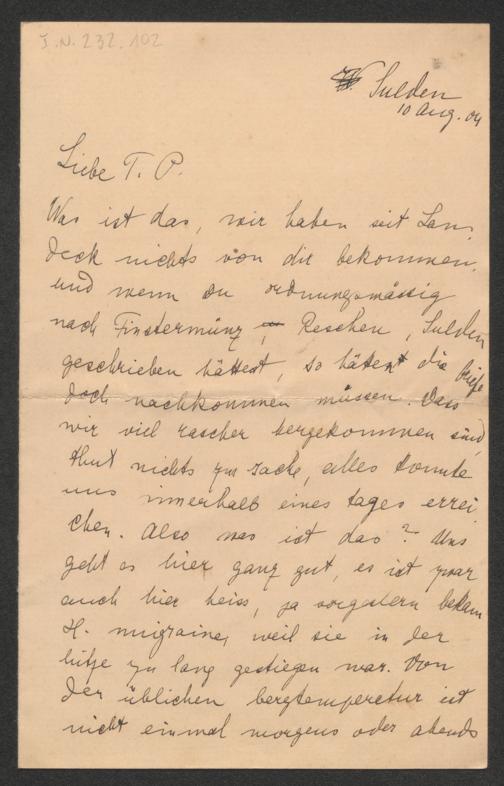 J.N. 232.102
Sulden
10 Aug. 04
Liebe T. P.
Was ist das, wir haben seit Lan,
deck nichts von dir bekommen,
und wenn du ordnungsmässig
nach Finstermünz, Reschen, Sulden
geschrieben hättest, so hätten die briefe
doch nachkommen müssen. Dass
wir viel rascher hergekommen sind,
thut nichts zur sache, alles konnte
uns innerhalb eines tages errei,
chen. Also was ist das? Uns
geht es hier ganz gut, es ist zwar
auch hier heiss, ja vorgestern bekam
H. migraine, weil sie in der
hitze zu lang gestiegen war. Von
der üblichen bergtemperatur ist
nicht einmal morgens oder abends